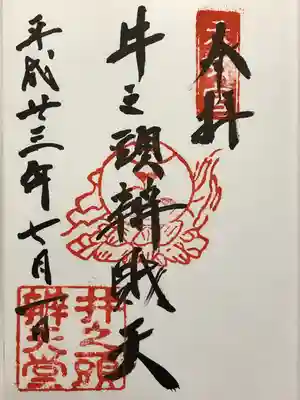 奉拝
井之頭辨財天
平成廿三年七月一日
井之頭
辨天堂